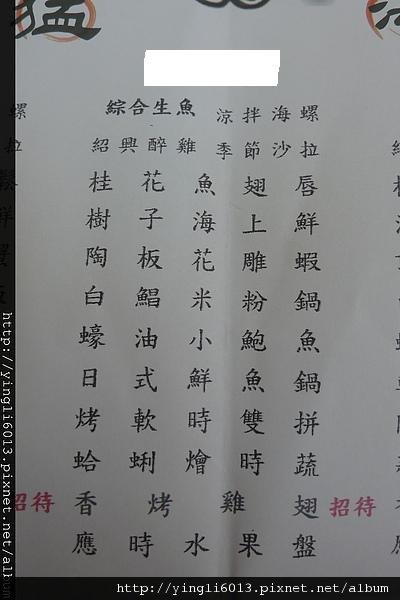 猛
螺
拉
鮮
招待
綜合生魚 涼拌海螺
紹興醉雞 季節沙拉
桂花魚翅唇
樹子海上鮮
陶板花雕蝦
白鯧米粉鍋
蠔油小鮑魚
日式鮮魚鍋
烤軟時雙拼
蛤蜊燴時蔬
香烤雞翅 招待
應時水果盤
http://yingli6013.pixnet.net/album
http://yingli6013.pixnet.net/album